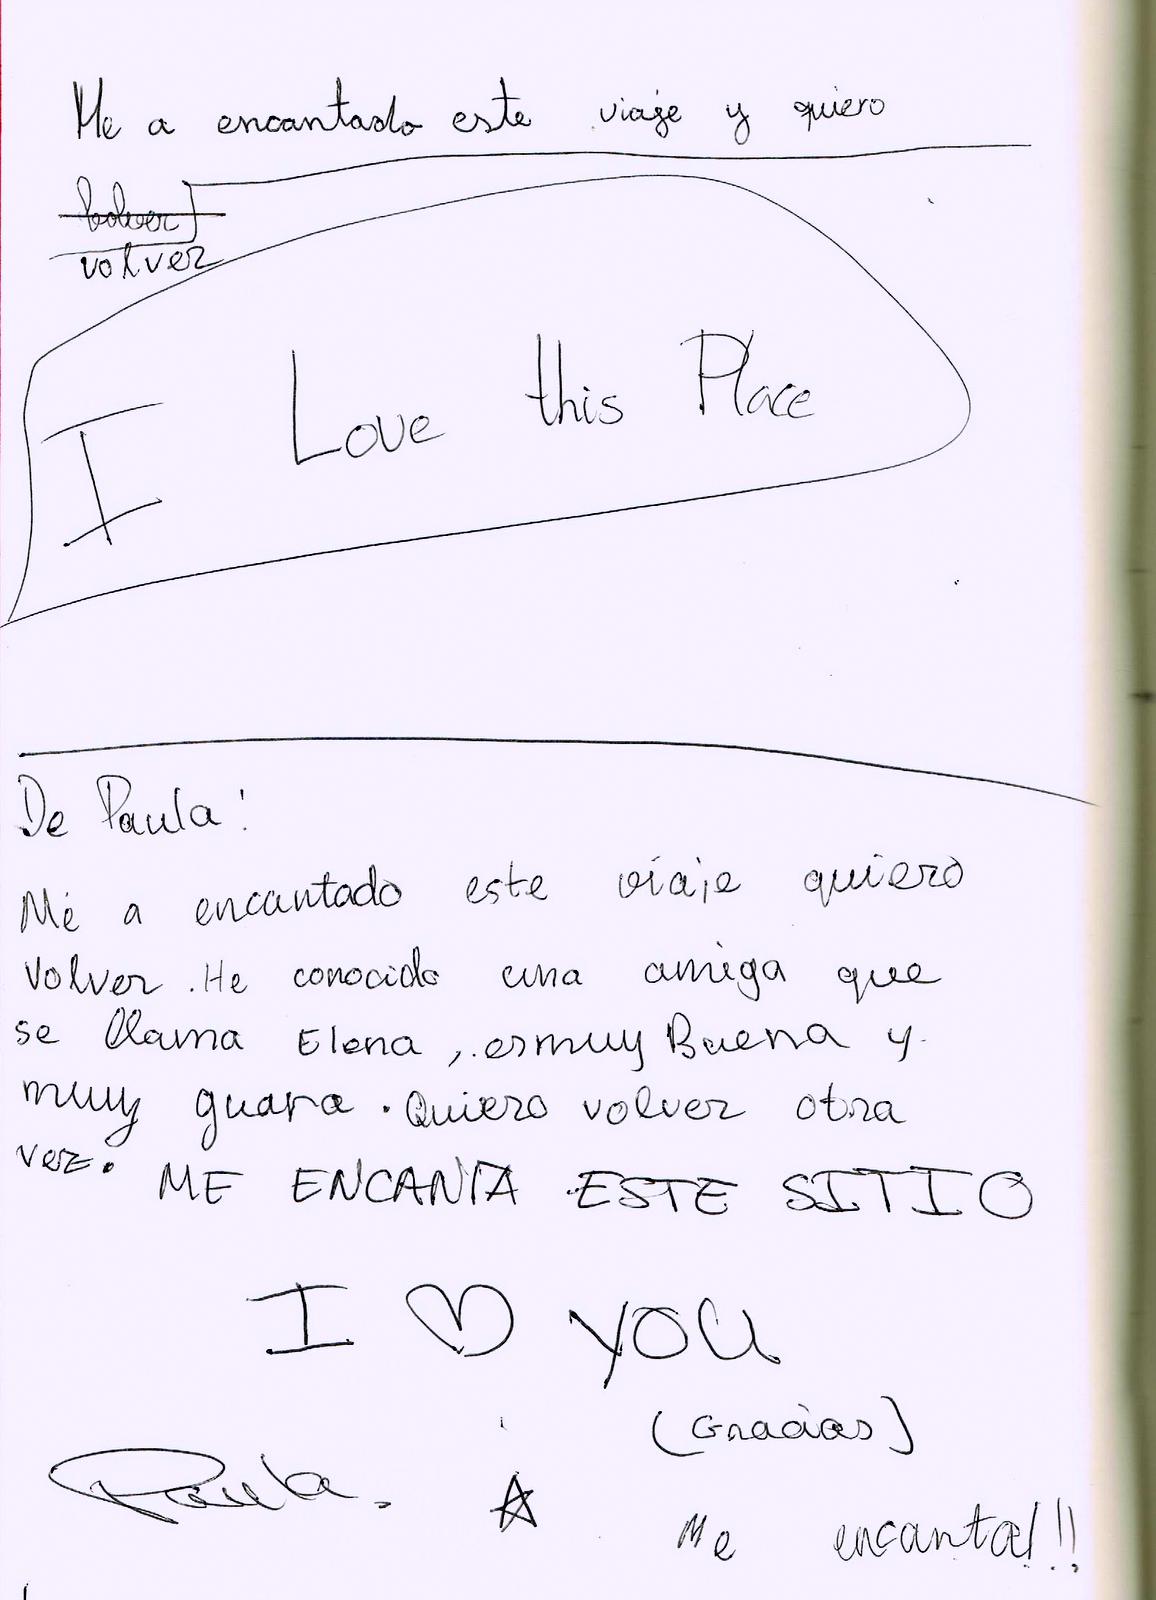 Me a encantado este viaje y quiero
bolver
volver
I Love this Place
De Paula:
Me a encantado este viaje quiero
volver. He conocido una amiga que
se llama Elena, es muy Buena y
muy guapa. Quiero volver otra
vez. ME ENCANTA ESTE SITIO
I ♡ YOU
(Gracias)
Paula.
Me encanta!!!